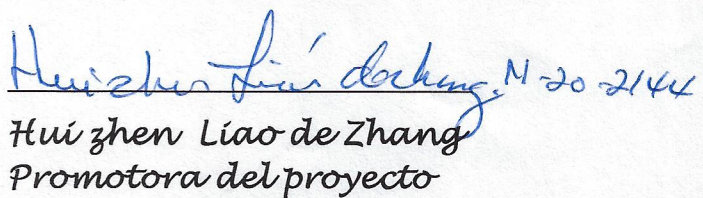 Huizhen Liao de Zhang. N-20-2144
Hui zhen Liao de Zhang
Promotora del proyecto